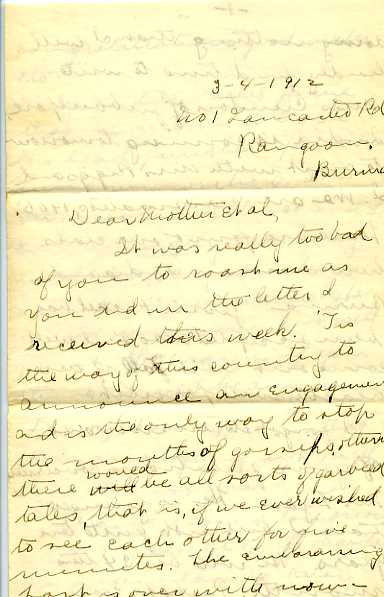 3-4-1912
No 1 Lancaster Rd
Rangoon,
Burma
Dear Mother et al,
It was really too bad
of you to roast me as
you did in the letter I
received this week. 'Tis
the way of this country to
announce an engagemen
and is the only way to stop
the mouths of gossips, otherw
there would be all sorts of garbled
tales, that is, if we ever wished
to see each other for five
minutes. The embarrassing
part is over with now-